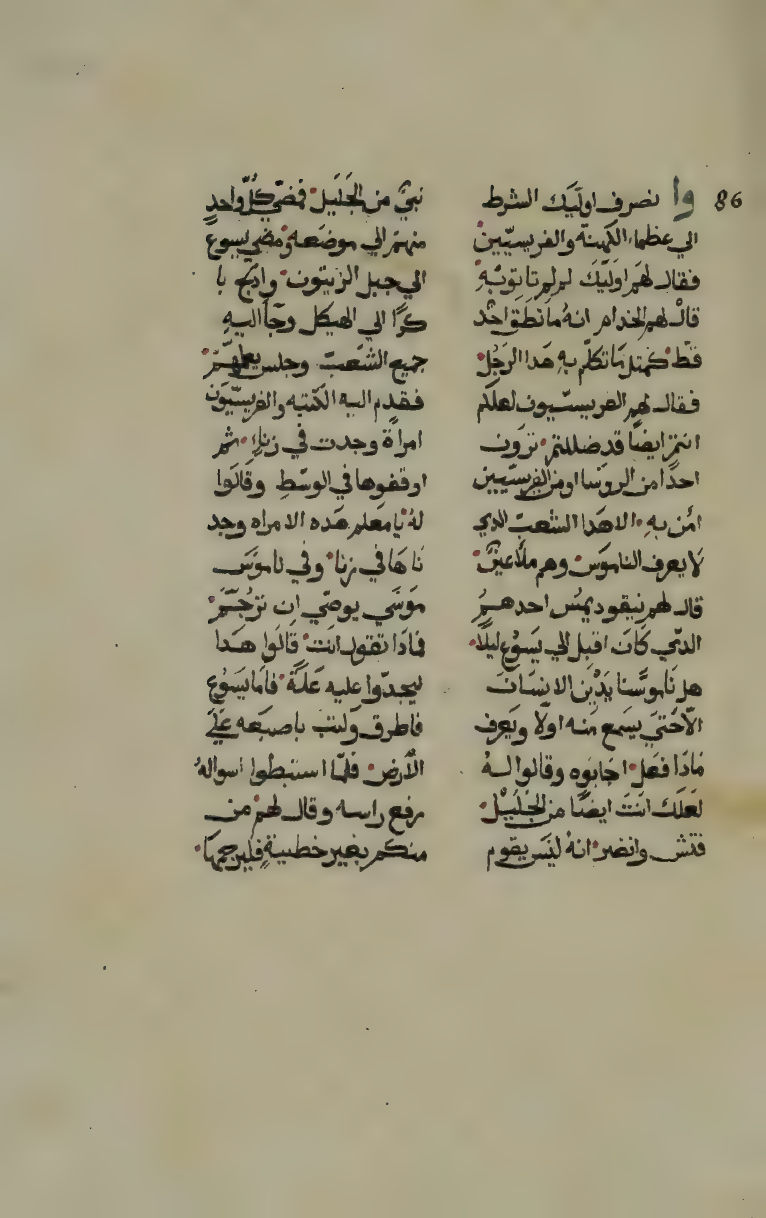 86
وانصرف اوليك الشرط
الي عظماء الكهنة والفريسيين
فقال لهم اوليك لم لم تاتو بهِ
قال لهم الخدام انهُ ما نطق احد
قط كمتل ما تكلّم بهِ هدا الرجل
فقال لهم الفريسيون لعلكم
انتم ايضًا قد ضللتم ترون
احدًا من الروسا او من الفريسيين
امن بهِ الا هدا الشعب الدي
لا يعرف الناموس وهم ملاعين
قال لهم نيقوديمس احدهم
الدي كان اقبل الي يسوع ليلًا
هل ناموسنا يدين الانسان
الّا حتي يسمع منه اولًا ويعرف
مادا فعل اجابوه وقالوا لهُ
لعلك انت ايضًا من الجليل
فتش وانضر انهُ ليس يقوم
نبيٌ من الجليل فمضي كلّ واحدٍ
منهم الي موضعه ومضي يسوع
الي جبل الزيتون وادلج با
كرًا الي الهيكل وجآ اليهِ
جميع الشعب وجلس يعلمهم
فقدم اليه الكتبه والفريسيون
امراة وجدت في زناءٍ ثم
اوقفوها في الوسط وقالوا
لهُ يا معلم هده الامراه وجد
ناها في زنا وفي ناموس
موسي يوصي ان ترجم
فمادا تقول انت قالوا هدا
ليجدوا عليه علّة فاما يسوع
فاطرق وكتب باصبعه علي
الارض فلمّا استبطوا اسواله
رفع راسه وقال لهم من
منكم بغير خطييةٍ فليرجمها